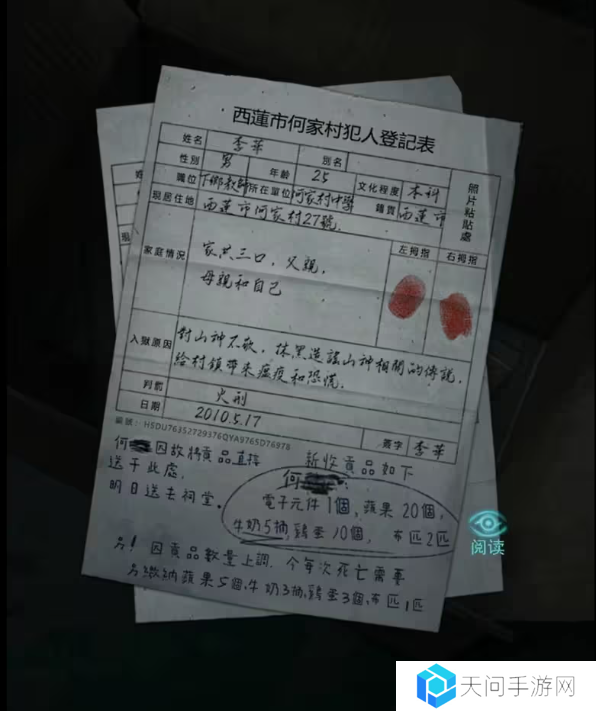 西蓮市何家村犯人登記表
姓名 李華 別名
性別 男 年齡 25 文化程度 本科
職位 下鄉教師 所在單位 何家村中學 籍貫 西蓮市
現居住地 西蓮市何家村27號.
照片粘貼處
家庭情況 家共三口,父親,
母親和自己
左拇指 右拇指
入獄原因 對山神不敬,抹黑造謠山神相關的傳說,
給村鎮帶來瘟疫和恐慌.
判罰 火刑
日期 2010.5.17
編號:HSDU76352729376QYA9765D76978
簽字 李華
何 因故將貢品直接
送于此處,
明日送去祠堂。
新收貢品如下
何
電子元件1個,蘋果20個,
牛奶5抽,雞蛋10個, 布匹2匹
另!因貢品數量上調.今每次死亡需要
另繳納蘋果5個,牛奶3抽,雞蛋3個,布匹1匹
阅读
天问手游网